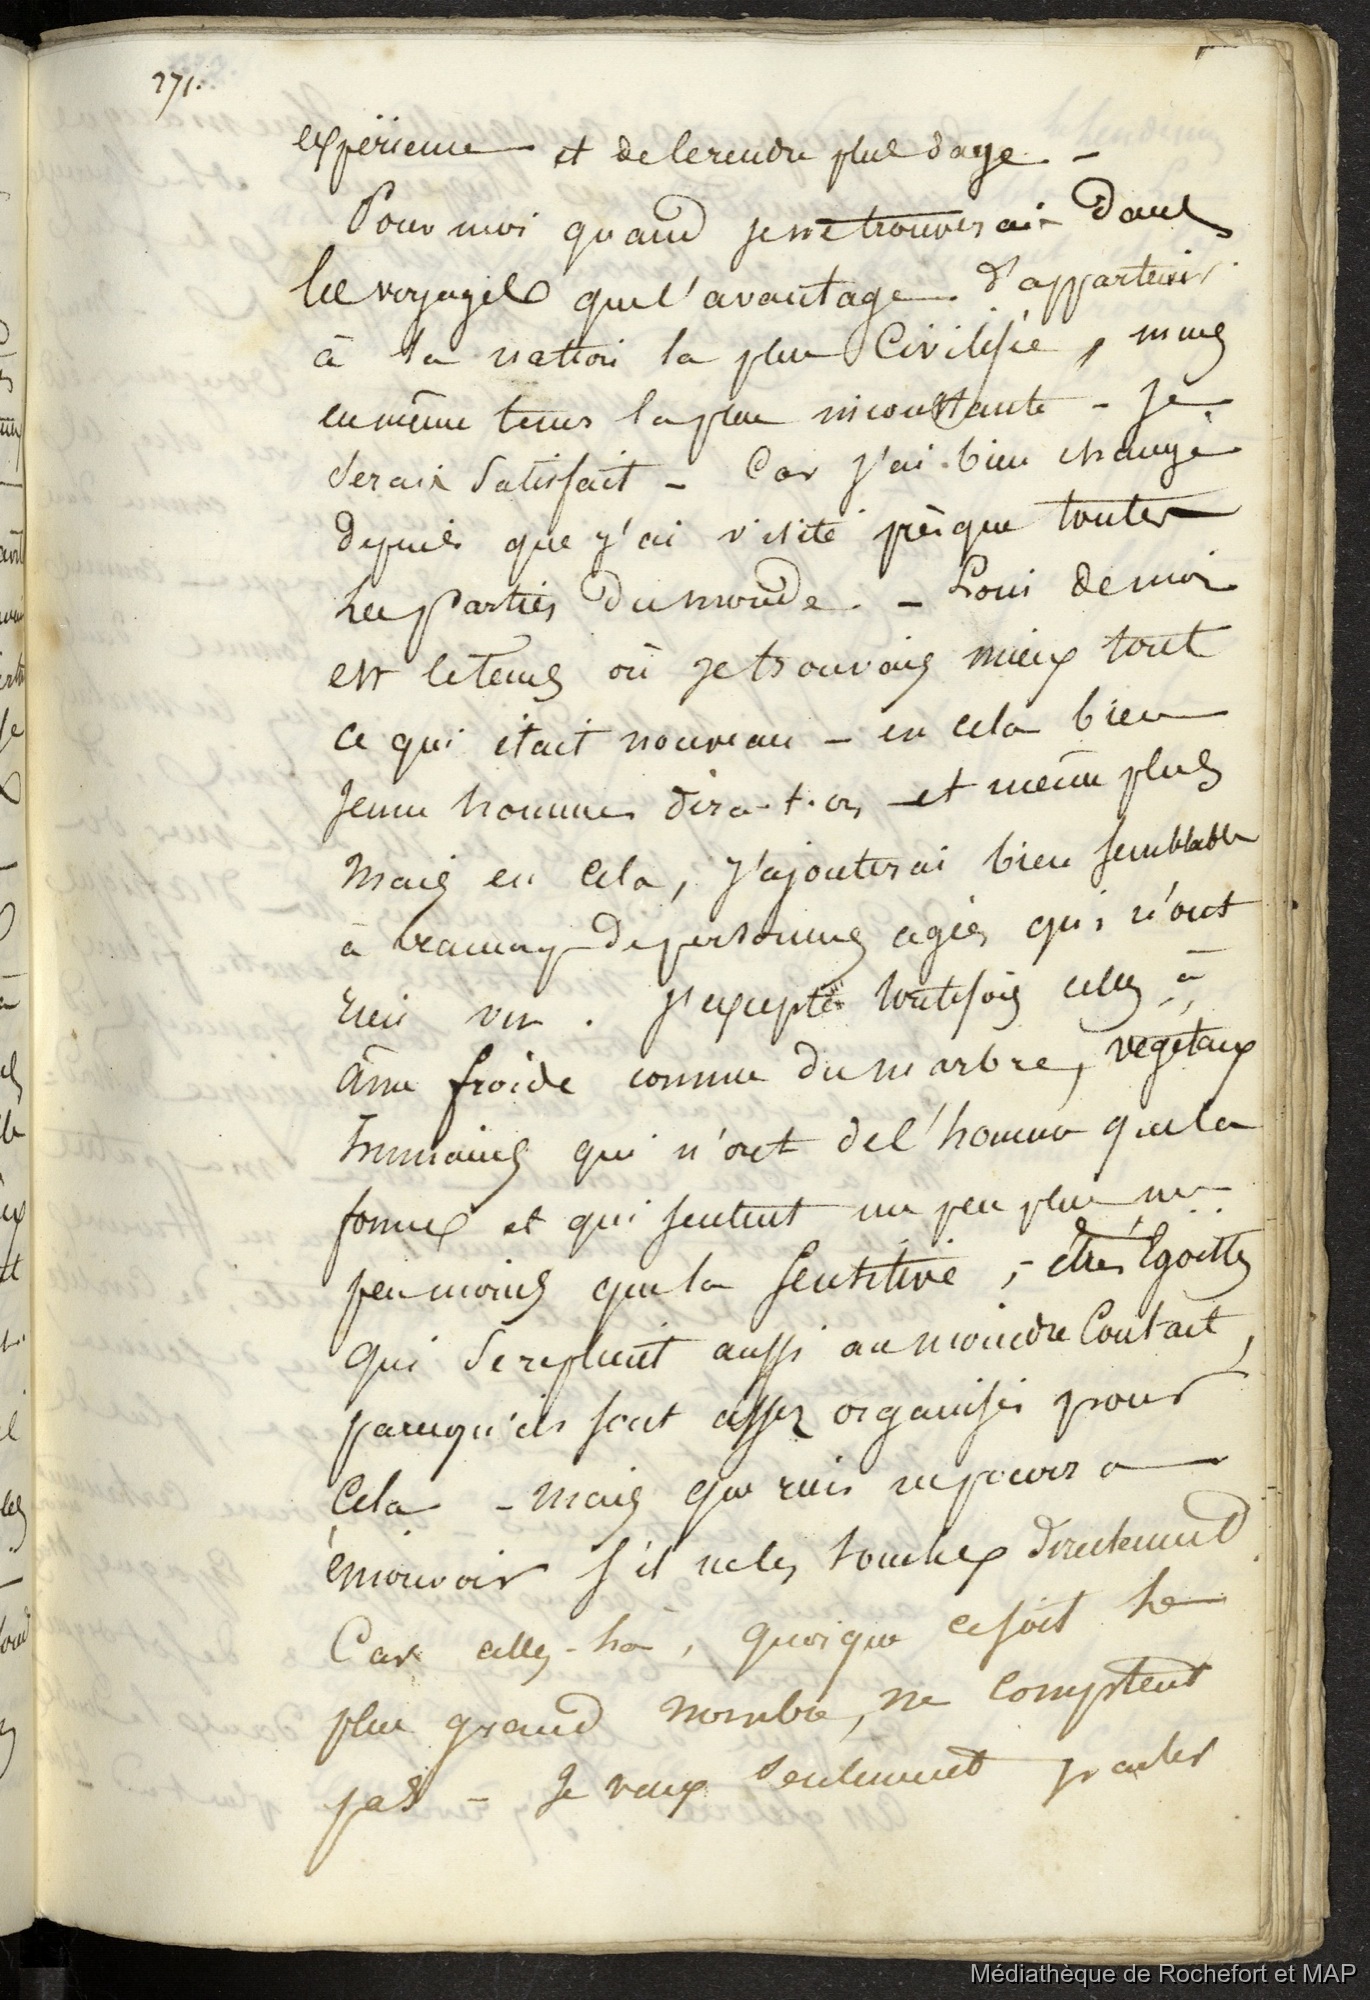 271.
expérience et de le rendre plus sage -
Pour moi quand je ne trouverais dans
les voyages que l'avantage d'appartenir
à la nation la plus Civilisée, mais
en même tems la plus inconstante - Je
serais satisfait - Car j'ai bien changé
depuis que j'ai visité présque toutes
les parties du monde. - Loin de moi
est le tems où je trouvais mieux tout
ce qui était nouveau - en cela bien
jeune homme dira-t-on - et même plus
Mais en cela, j'ajouterai bien semblable
à beaucoup de personnes agées qui n'ont
rien vu. j'excepte toutefois celles à
âme froide comme du marbre, végétaux
humains qui n'ont de l'homme que la
forme et qui sentent un peu plus un
peu moins que la sensitive, - êtres Egoïstes
qui se replient aussi au moindre Contact,
parcequ'ils sont assez organisés pour
Cela - mais que rien ne pourra
émouvoir s'il ne les touche directement
Car celles-là, quoique ce soit le
plus grand nombre, ne comptent
pas - Je veux seulement parler
Médiathèque de Rochefort et MAP